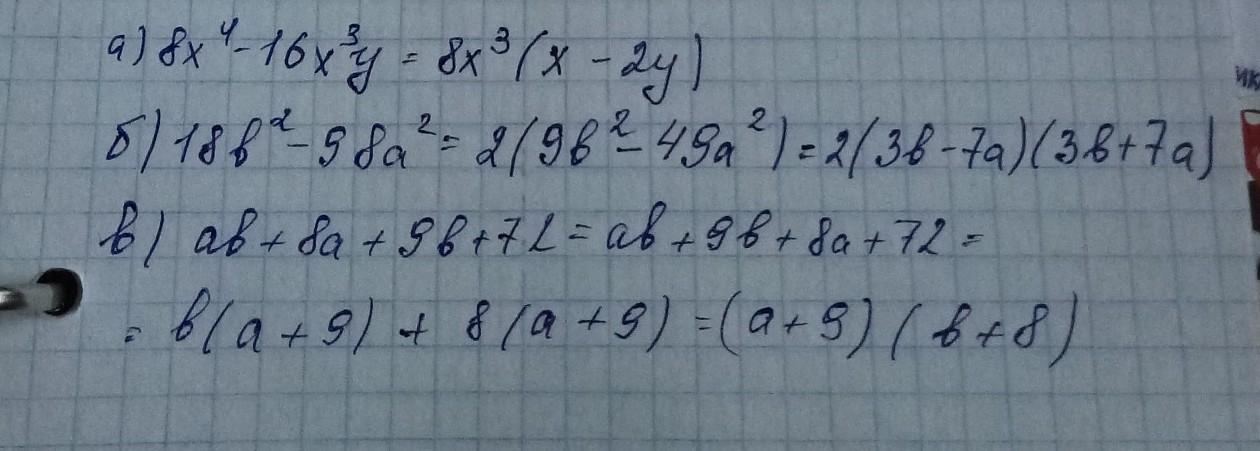 а) 8x⁴ - 16x³y = 8x³(x - 2y)
б) 18b² - 98a² = 2(9b² - 49a²) = 2(3b - 7a)(3b + 7a)
в) ab + 8a + 9b + 72 = ab + 9b + 8a + 72 =
= b(a + 9) + 8(a + 9) = (a + 9)(b + 8)